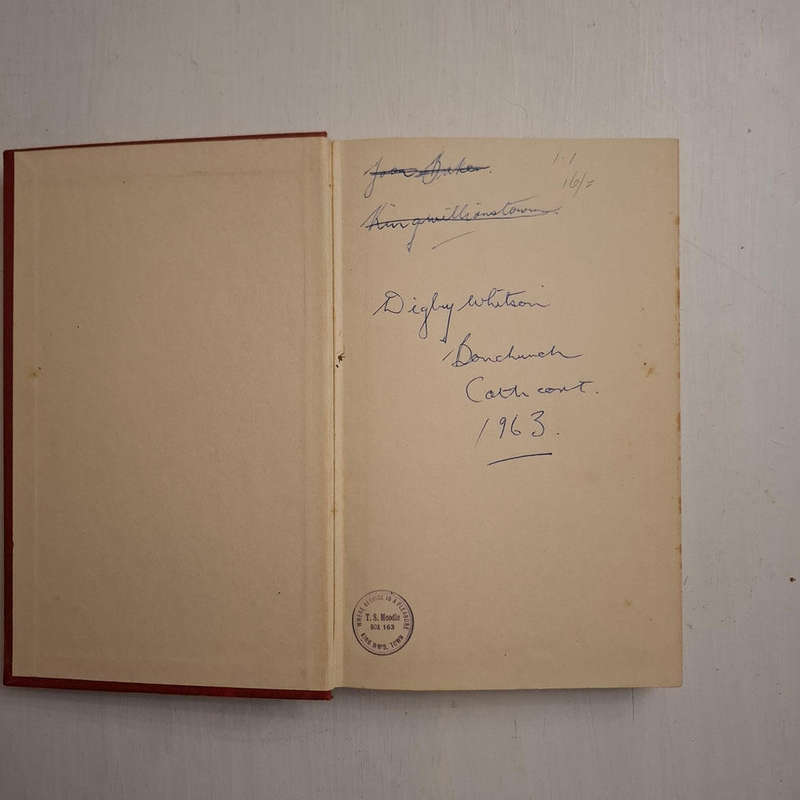 Joan Baker.
1.1
16/=
Kingwilliamstown.
Digby Whitson
Bonchurch
Cathcart.
1963.
WHERE SERVICE IS A PLEASURE
T. S. Moodie
BOX 163
KING WM'S. TOWN